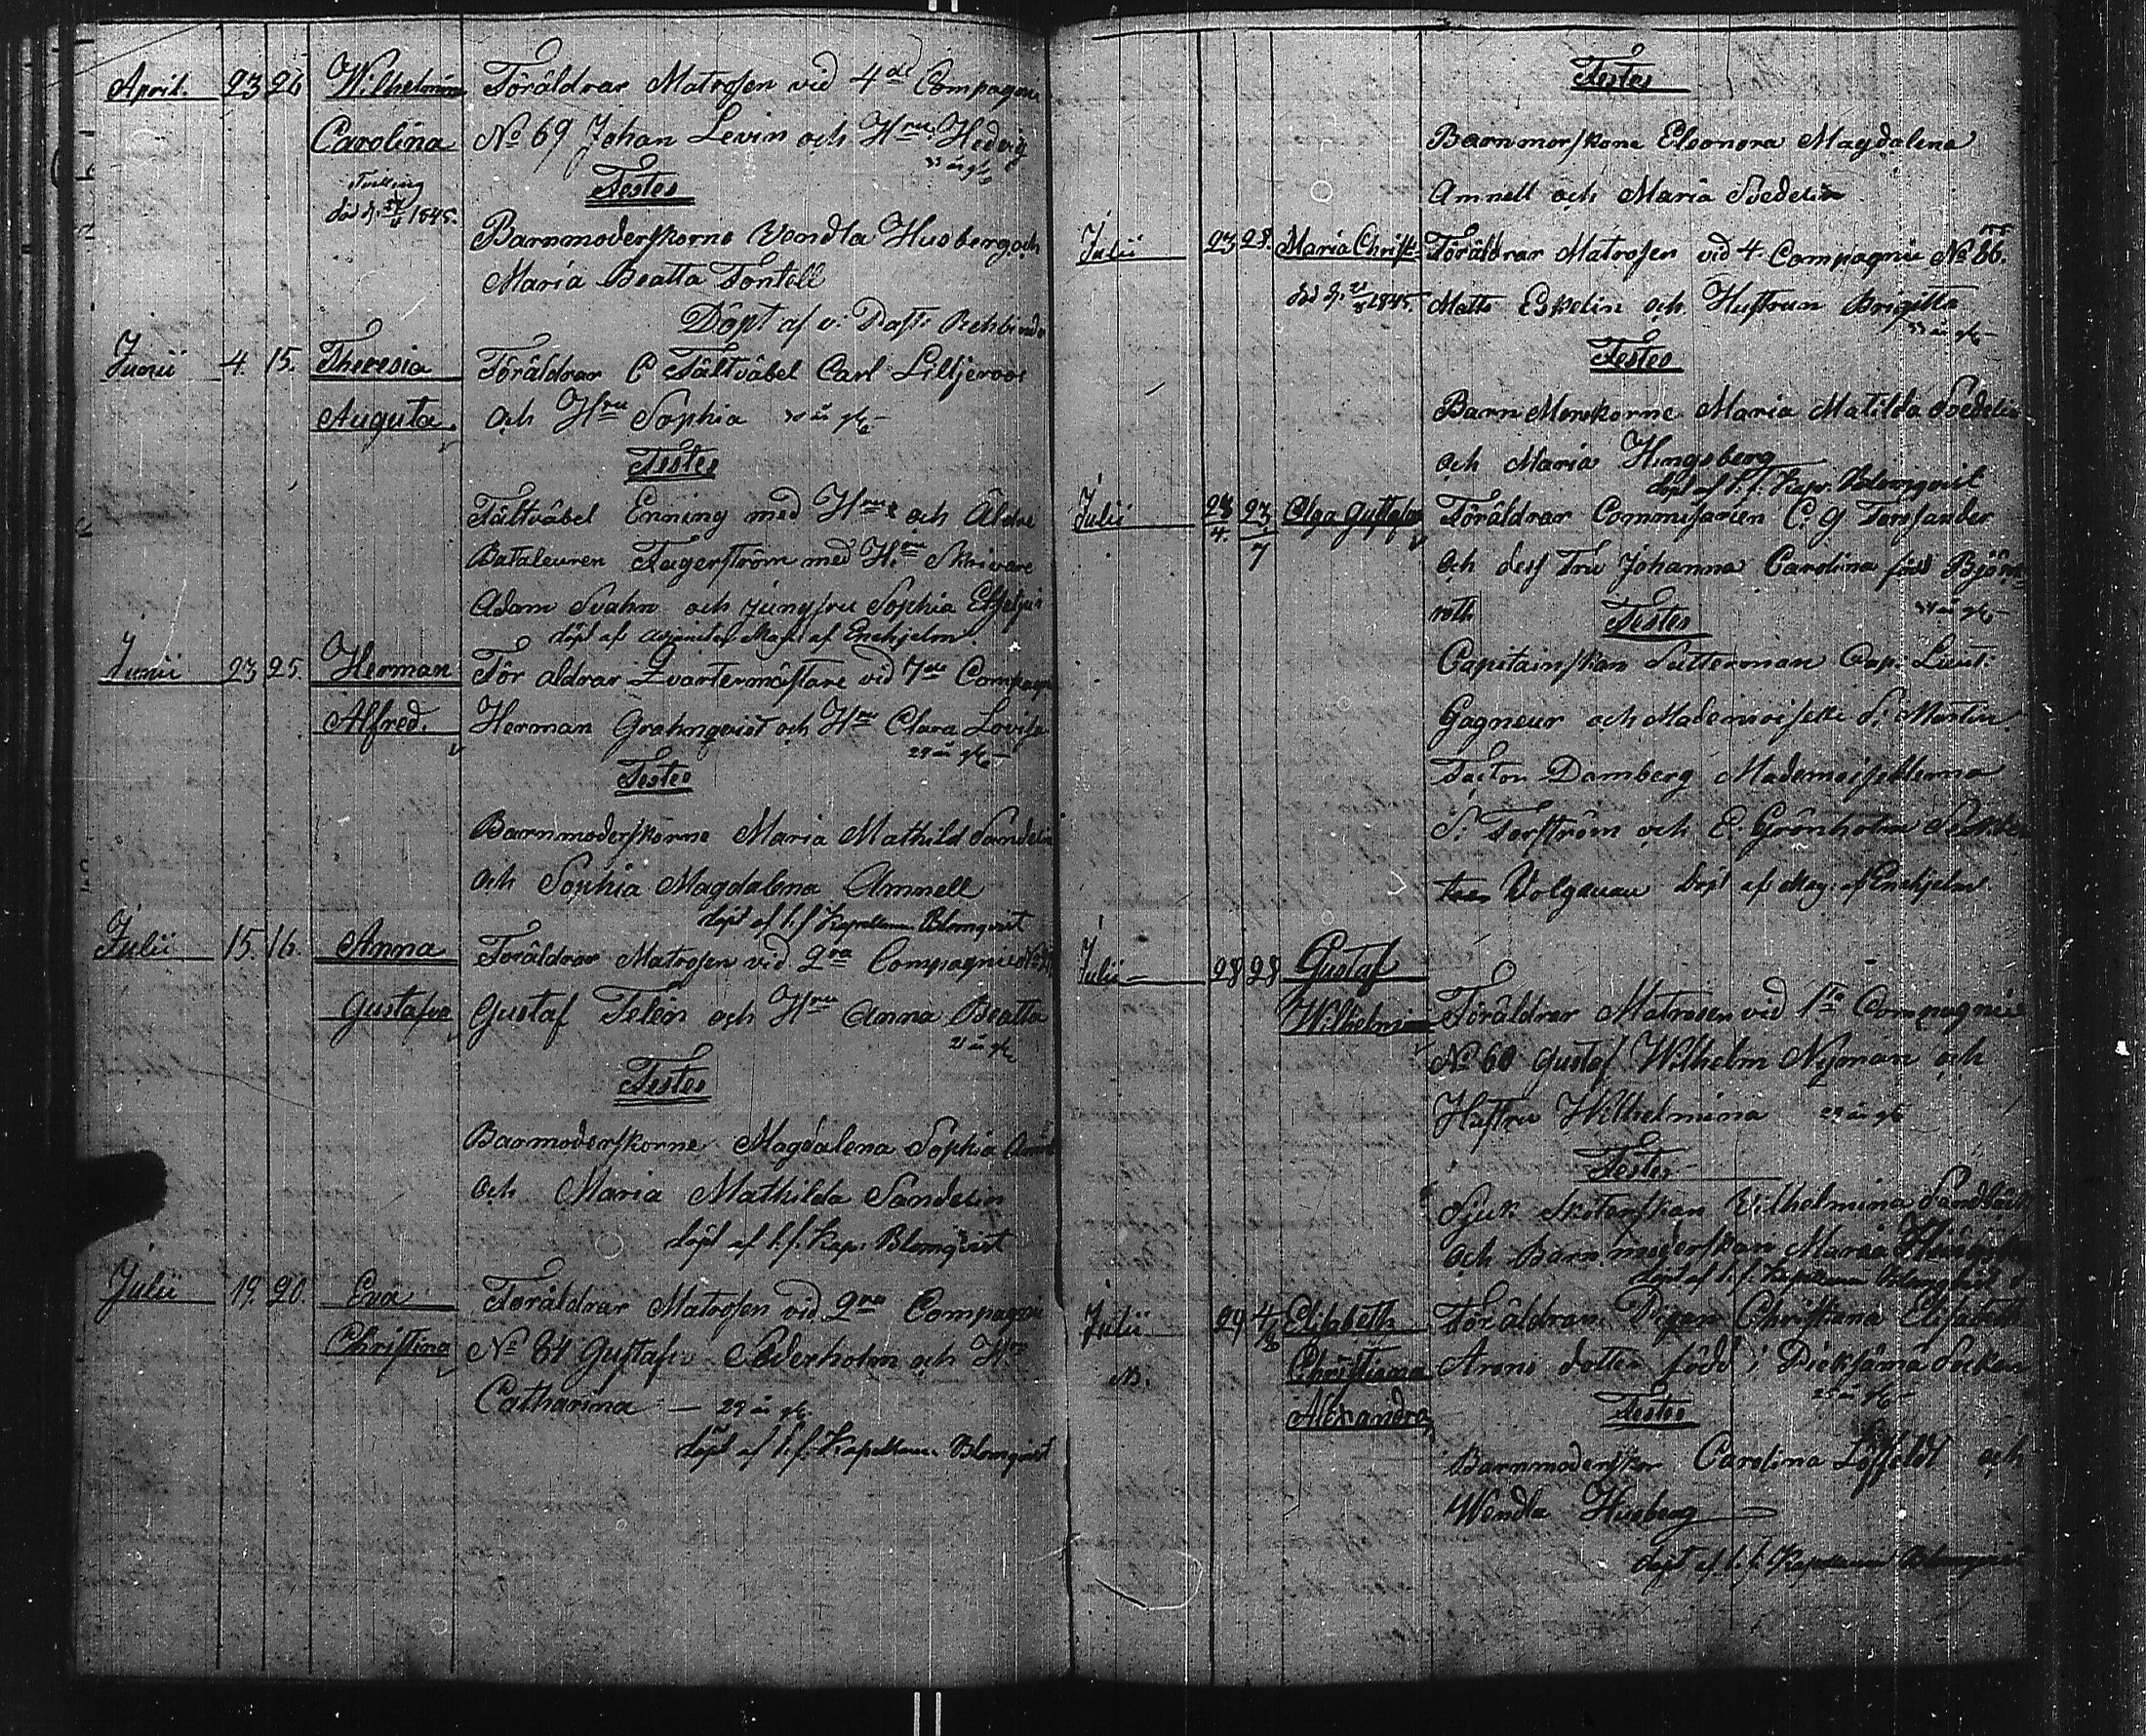 April. 23 26 Wilhelmina Föräldrar Matrosen vid 4de Compagnie
Carolina No 69 Johan Levin och Hru Hedvig
Tvilling
död d. 1845.
Testes
Barnmoderskorne Vendla Husberg och
Maria Beatta Fontell
Döpt af v: Past: Rehbinder
Junii 4. 15. Theresia Föräldrar Fältväbel Carl Lilljeroos
Auguta. och Hru Sophia
Testes
Fältväbel Enning med Hru och Äldre
Bataleuren Fagerström med Hru Skrivare
Adam Svahn och jungfru Sophia
döpt af Mag: af Enehjelm.
Junii 23 25. Herman För äldrar Qvartermästare vid 7de Compagnie
Alfred. Herman Grahnqvist och Hru Clara Lovisa
29 år
Testes
Barnmoderskorne Maria Mathild Sandelin
och Sophia Magdalena Amnell
döpt af t.f. Kapellanen Blomqvist
Julii 15. 16. Anna Föräldrar Matrosen vid 2ra Compagnie
Gustafva Gustaf Felén och Hru Anna Beatta
21 år
Testes
Barmoderskorne Magdalena Sophia
och Maria Mathilda Sandelin
döpt af t.f. Kap: Blomqvist
Julii 19. 20. Eva Föräldrar Matrosen vid 2ra Compagnie
Christina No 84 Gustaf Söderholm och Hru
Catharina — 29 år
döpt af t.f. Kapellanen Blomqvist
Testes
Barnmorskone Eleonora Magdalena
Amnell och Maria Sedelin
Julii 23 28. Maria Christ: Föräldrar Matrosen vid 4. Compagnie No 86.
död d. 1845. Matts Eskelin och Hustrun Brigitta
Testes
Barn Morskorne Maria Matilda Sedelin
och Maria Hingsberg
döpt af t.f. Kap: Blomqvist
Julii 28/4. 23/7 Olga Gustafva Föräldrar Commisarien C. G Forssander
och dess Fru Johanna Carolina född Björn-
roth
Testes
Capitainskan Sutterman Cap: Lieut:
Gagneur och Mademoiselle S. Martin
Factor Damberg Mademoisellerna
S: Forsström och E. Grönholm
Volgenau döpt af Mag: af Enehjelm
Julii 28 28 Gustaf
Wilhelm Föräldrar Matrosen vid 1a Compagnie
No 60 Gustaf Wilhelm Nyman och
Hustru Wilhelmina 29 år
Testes
Sjuk Skoterskan Vilhelmina
och Barn moderskan Maria
döpt af t.f. Kapellanen Blomqvist
Julii 29 4/8 Elisabeth Föräldrar Pigan Christiana Elisabeth
N. Christiana Arons dotter född i Pieksämä Socken
25 år
Alexandra
Testes
Barnmoderskor Carolina Löffeldt och
Wendla Husberg
döpt af t.f. Kapellanen Blomqvist